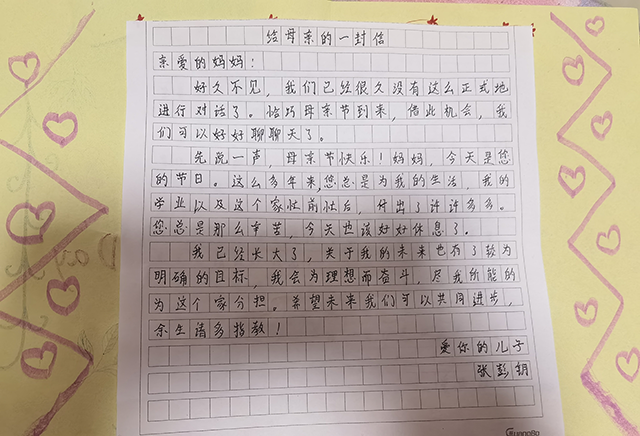 给母亲的一封信
亲爱的妈妈：
好久不见，我们已经很久没有这么正式地
进行对话了。恰巧母亲节到来，借此机会，我
们可以好好聊聊天了。
先说一声，母亲节快乐！妈妈，今天是您
的节日。这么多年来,您总是为我的生活，我的
学业以及这个家忙前忙后，付出了许许多多。
您总是那么辛苦，今天也该好好休息了。
我已经长大了，关于我的未来也有了较为
明确的目标，我会为理想而奋斗，尽我所能的
为这个家分担。希望未来我们可以共同进步，
余生请多指教！
爱你的儿子
张彭钥
GuangBo